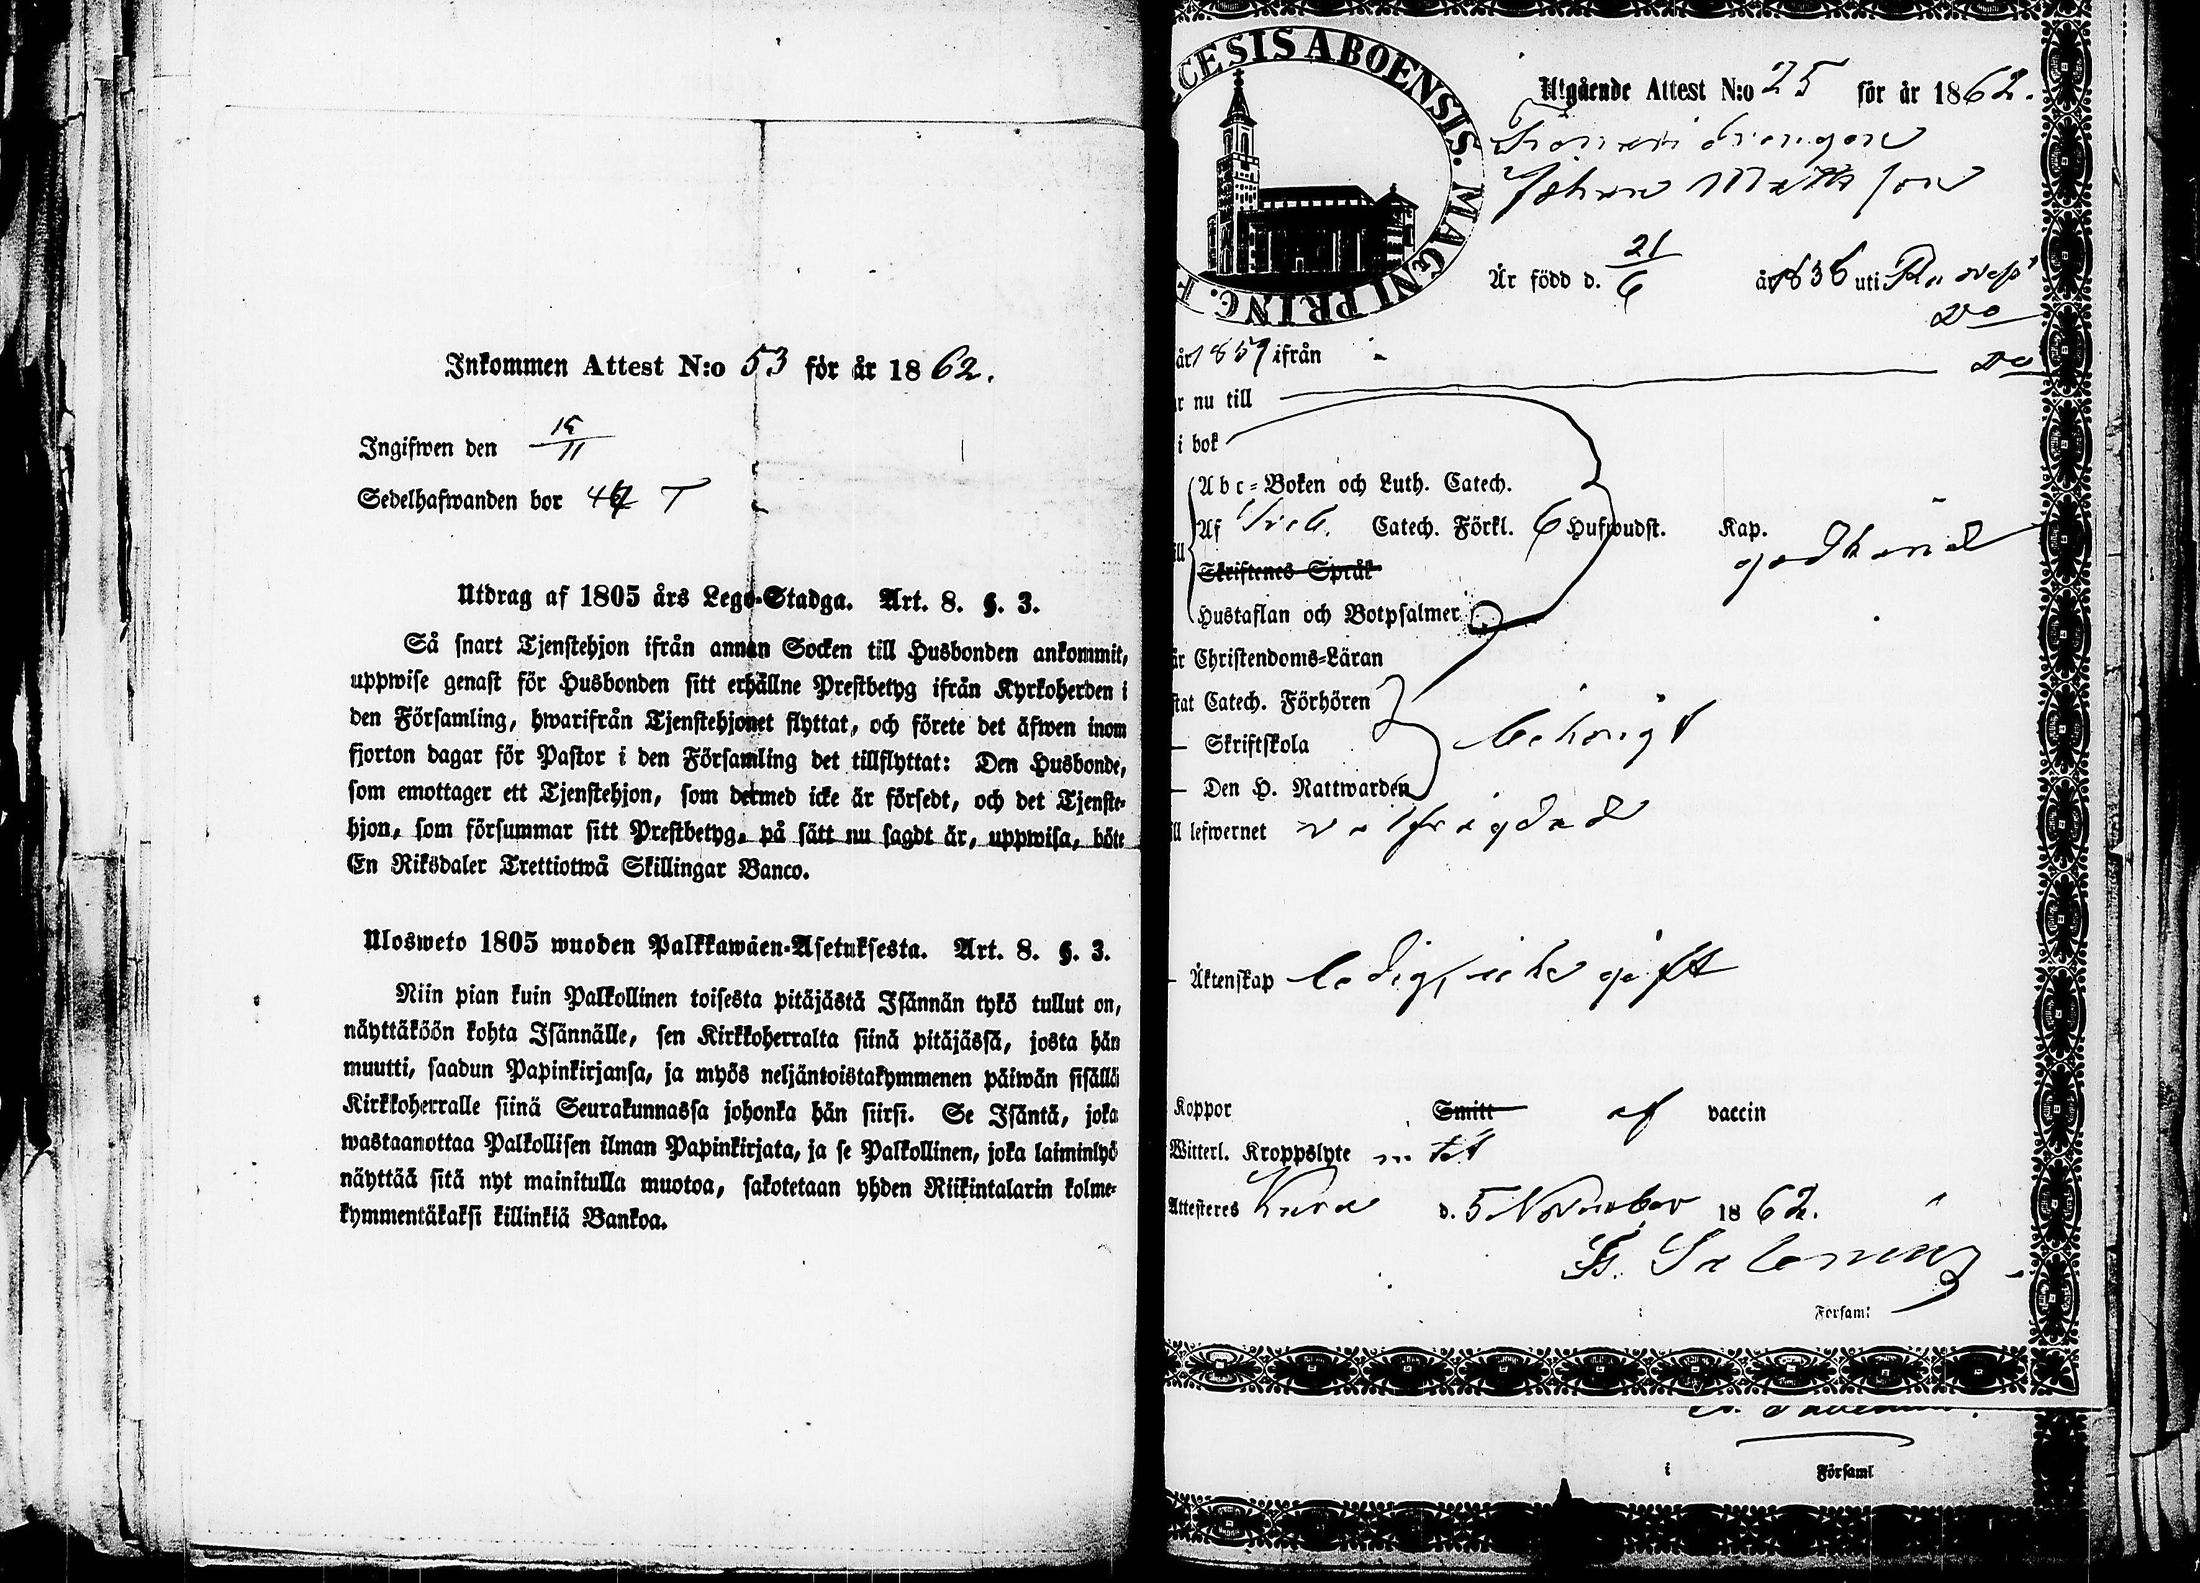 Inkommen Attest N:o 53 för år 1862.
Ingifwen den 15/11
Sedelhafwanden bor T
Utdrag af 1805 års Lego-Stadga. Art. 8. §. 3.
Så snart Tjenstehjon ifrån annan Socken till Husbonden ankommit,
uppwise genast för Husbonden sitt erhållne Prestbetyg ifrån Kyrkoherden i
den Församling, hwarifrån Tjenstehjonet flyttat, och förete det äfwen inom
fjorton dagar för Pastor i den Församling det tillflyttat: Den Husbonde,
som emottager ett Tjenstehjon, som dermed icke är försedt, och det Tjenste-
hjon, som försummar sitt Prestbetyg, på sätt nu sagdt är, uppwisa, böte
En Riksdaler Trettiotwå Skillingar Banco.
Ulosweto 1805 wuoden Palkkawäen-Asetuksesta. Art. 8. §. 3.
Niin pian kuin Palkollinen toisesta pitäjästä Isännän tykö tullut on,
näyttäköön kohta Isännälle, sen Kirkkoherralta siinä pitäjässä, josta hän
muutti, saadun Papinkirjansa, ja myös neljäntoistakymmenen päiwän sisällä
Kirkkoherralle siinä Seurakunnassa johonka hän siirsi. Se Isäntä, joka
wastaanottaa Palkollisen ilman Papinkirjata, ja se Palkollinen, joka laiminlyö
näyttää sitä nyt mainitulla muotoa, sakotetaan yhden Riikintalarin kolme-
kymmentäkaksi killinkiä Bankoa.
CESIS ABOENSIS. MAGNI PRINC. F
Utgående Attest N:o 25 för år 1862.
Johan Mattsson
Är född d. 21/6 år 1836 uti
Do
år 1859 ifrån Do
r nu till
i bok
Abc-Boken och Luth. Catech.
Af Catech. Förkl. 6 Hufwudst. Kap.
godkänd
Skriftenes Språk
Hustaflan och Botpsalmer
är Christendoms-Läran
stat Catech. Förhören
— Skriftskola behörigt
— Den H. Nattwarden
ll lefwernet välfrägdad
— Äktenskap ledig, icke gift
Koppor Smitt af vaccin
Witterl. Kroppslyte intet
Attesteres Kura d. 5 November 1862.
i Församl
i Församl